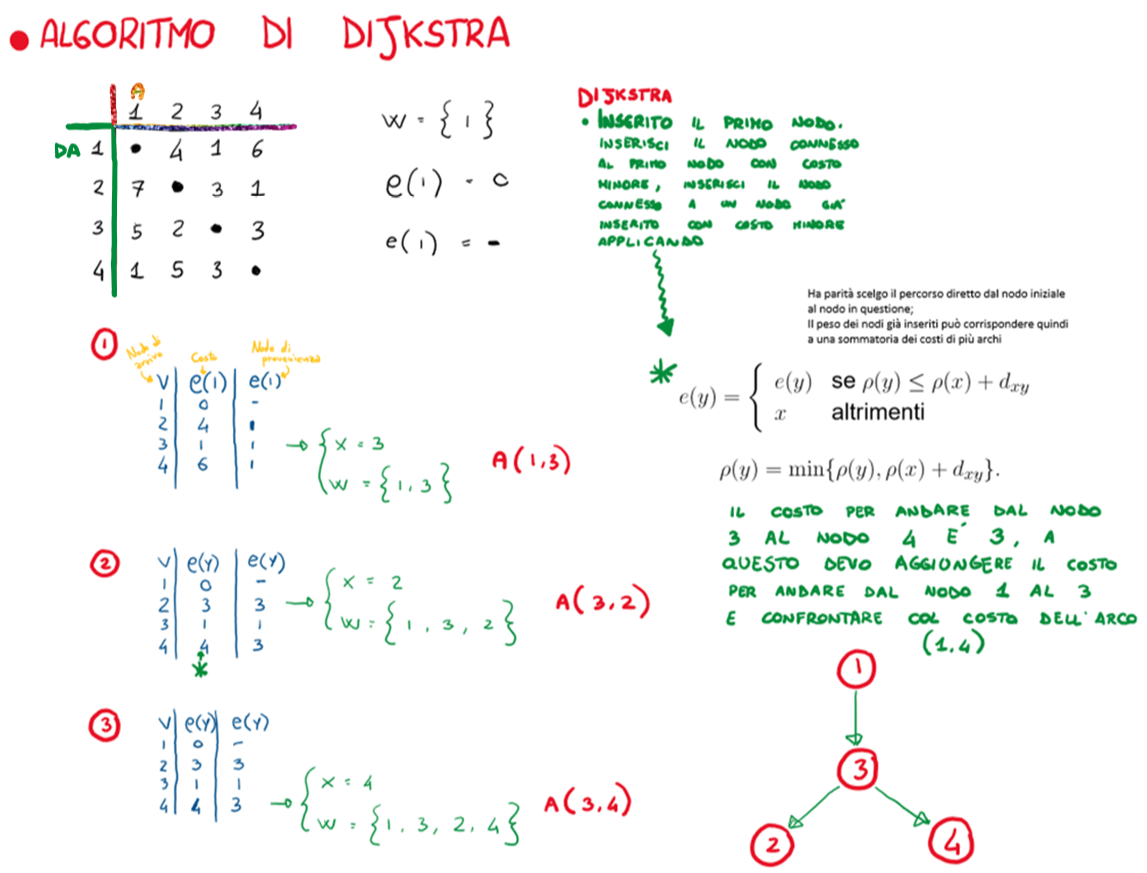 • ALGORITMO DI DIJKSTRA
A
1 2 3 4
DA 1 • 4 1 6
2 7 • 3 1
3 5 2 • 3
4 1 5 3 •
W = {1}
e(1) = 0
e(1) = -
DIJKSTRA
• INSERITO IL PRIMO NODO.
INSERISCI IL NODO CONNESSO
AL PRIMO NODO CON COSTO
MINORE, INSERISCI IL NODO
CONNESSO A UN NODO GIA'
INSERITO CON COSTO MINORE
APPLICANDO
Ha parità scelgo il percorso diretto dal nodo iniziale
al nodo in questione;
Il peso dei nodi già inseriti può corrispondere quindi
a una sommatoria dei costi di più archi
*
e(y) = { e(y) se ρ(y) ≤ ρ(x) + dxy
x altrimenti
ρ(y) = min{ρ(y), ρ(x) + dxy}.
IL COSTO PER ANDARE DAL NODO
3 AL NODO 4 È 3, A
QUESTO DEVO AGGIUNGERE IL COSTO
PER ANDARE DAL NODO 1 AL 3
E CONFRONTARE COL COSTO DELL'ARCO
(1,4)
1
Nodo di arrivo
Costo
Nodo di provenienza
V e(1) e(1)
1 0 -
2 4 1
3 1 1
4 6 1
→ { X = 3
W = {1, 3}
A(1,3)
2
V e(Y) e(Y)
1 0 -
2 3 3
3 1 1
4 4 3
*
→ { X = 2
W = {1, 3, 2}
A(3,2)
3
V e(Y) e(Y)
1 0 -
2 3 3
3 1 1
4 4 3
→ { X = 4
W = {1, 3, 2, 4}
A(3,4)
1
3
2
4